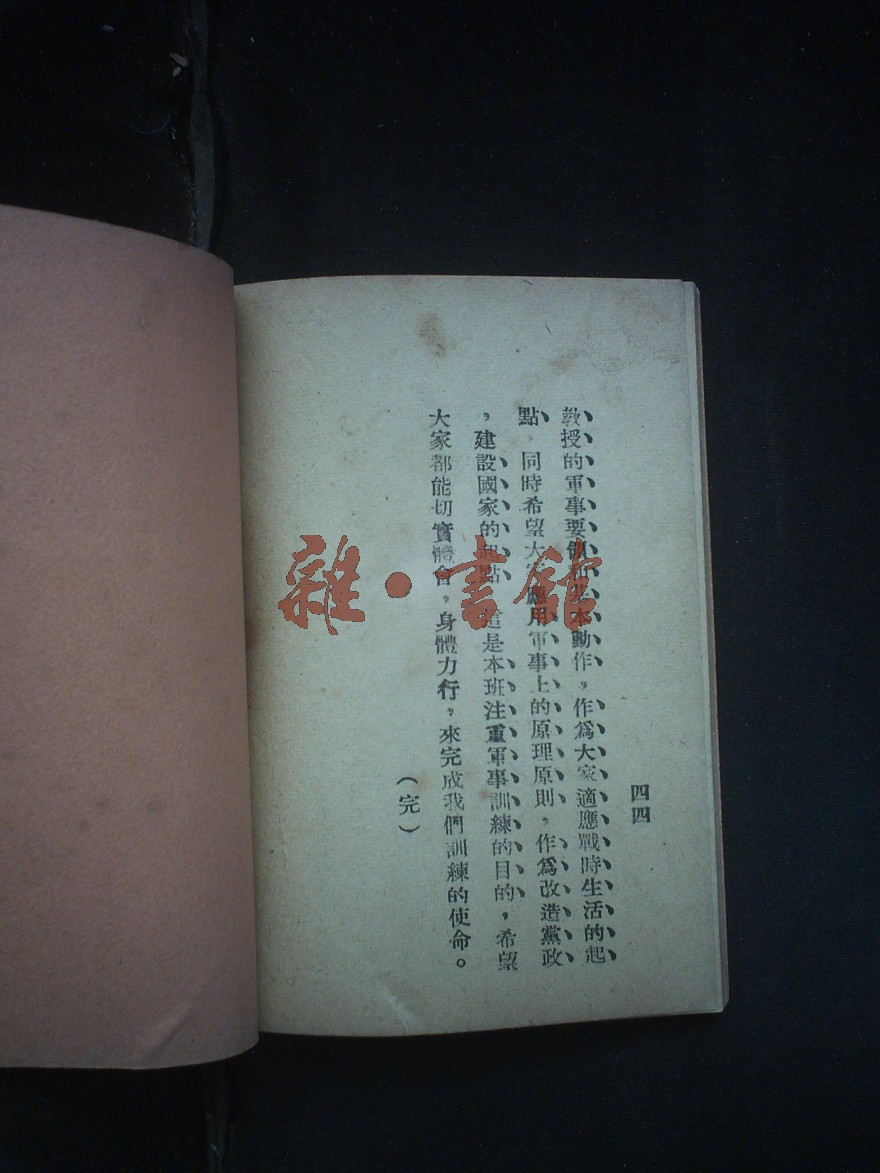 四四
教授的軍事要領和基本動作，作爲大家適應戰時生活的起
點，同時希望大家應用軍事上的原理原則，作爲改造黨政
，建設國家的起點，這是本班注重軍事訓練的目的，希望
大家都能切實體會，身體力行，來完成我們訓練的使命。
（完）
雜·書館